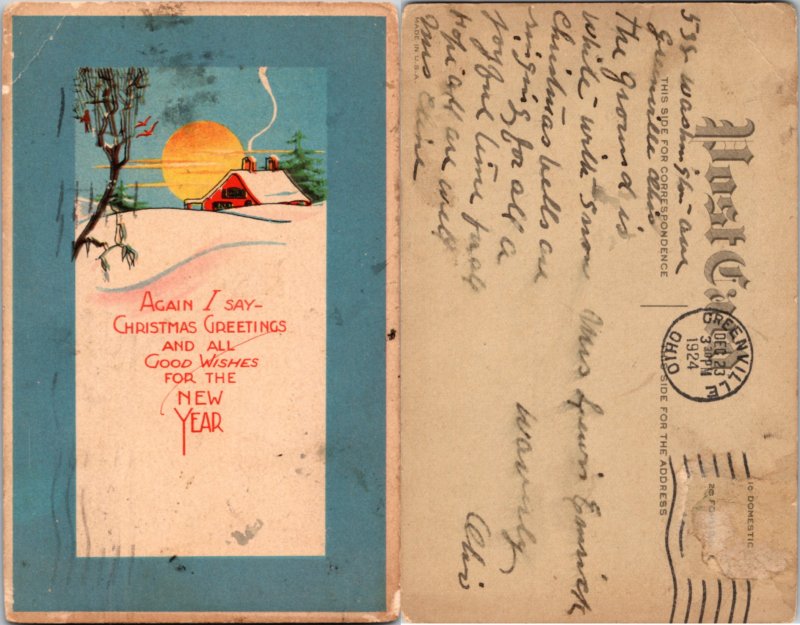 AGAIN I SAY-
CHRISTMAS GREETINGS
AND ALL
GOOD WISHES
FOR THE
NEW
YEAR
MADE IN U.S.A.
THIS SIDE FOR CORRESPONDENCE
Post Card
THIS SIDE FOR THE ADDRESS
GREENVILLE
DEC 23
3 PM
1924
OHIO
1c DOMESTIC
2c FO
538 Washington ave
Greenville Ohio
The Ground is
White with Snow
Christmas bells are
ringing for all a
joyful time
Hope all are well
Mrs
Mrs Lewis Emrick
Waverly
Ohio